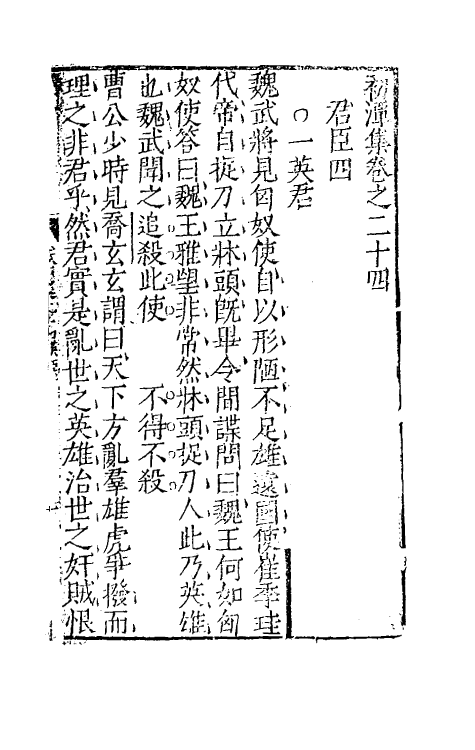 初潭集卷之二十四
君臣四
○一英君
魏武將見匈奴使自以形陋不足雄遠國使崔季珪
代帝自捉刀立牀頭旣畢令間諜問曰魏王何如匈
奴使答曰魏王雅望非常然牀頭捉刀人此乃英雄
也魏武聞之追殺此使　不得不殺
曹公少時見喬玄玄謂曰天下方亂羣雄虎爭撥而
理之非君乎然君實是亂世之英雄治世之奸賊恨